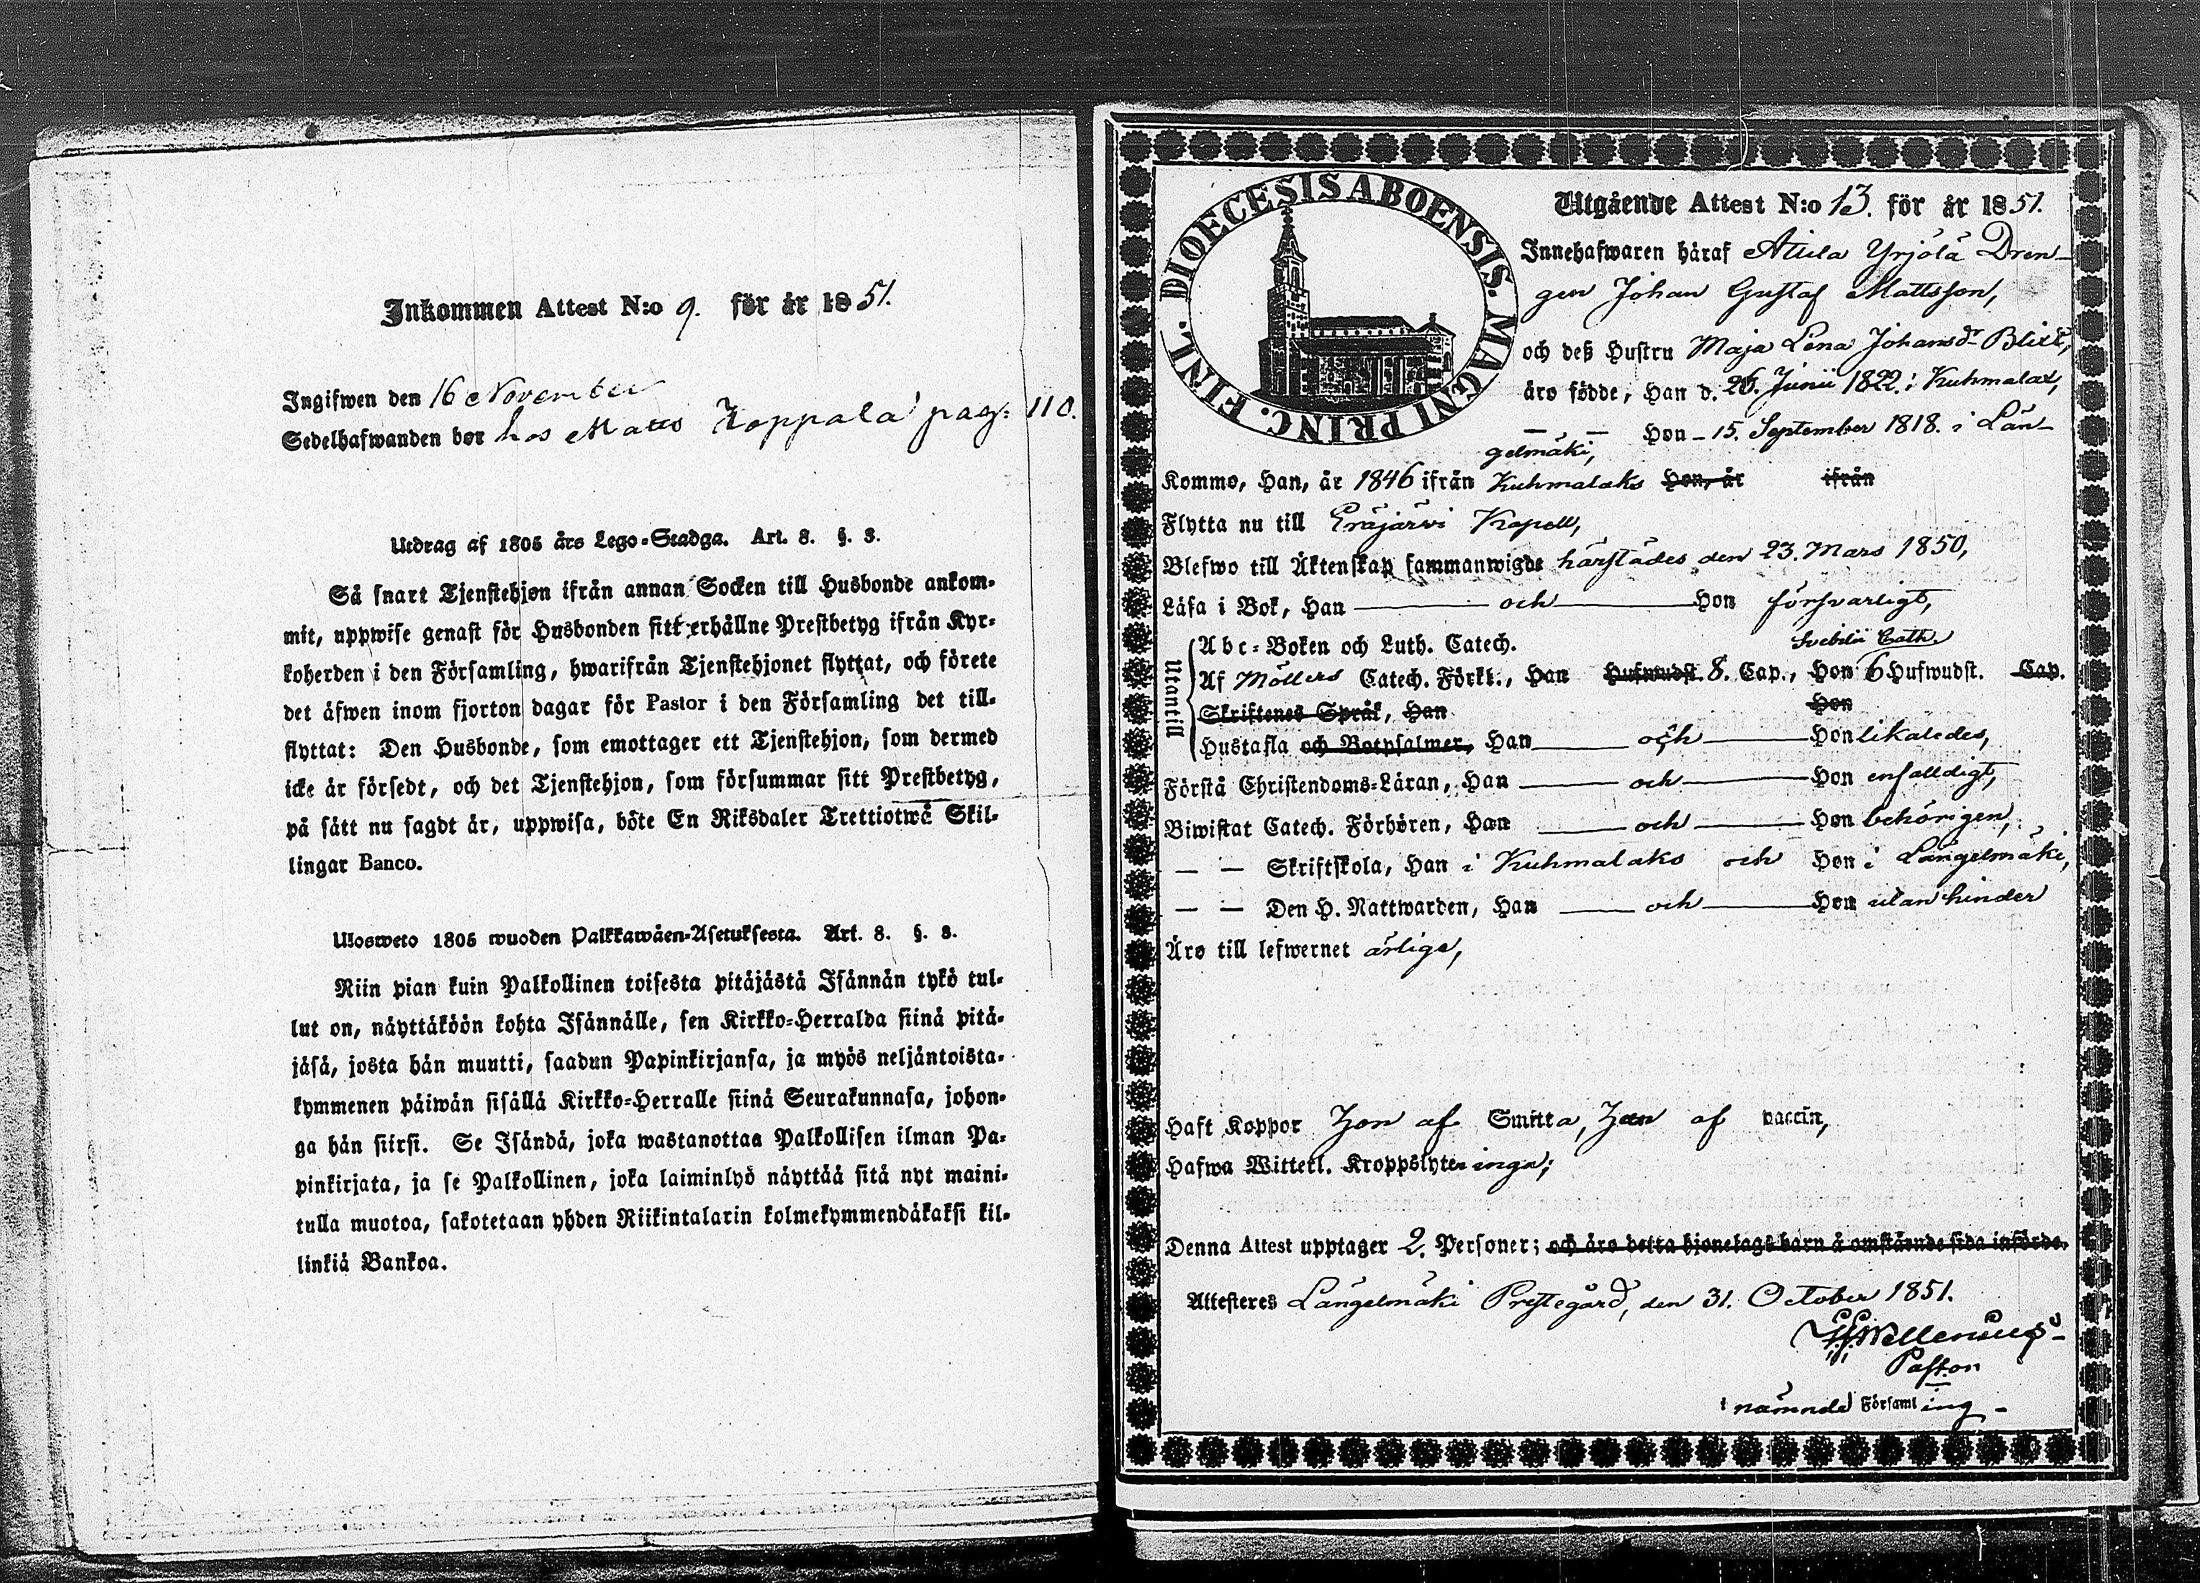 Inkommen Attest N:o 9. för år 1851.
Ingifwen den 16 November
Sedelhafwanden bor hos Matts Koppala pag: 110.
Utdrag af 1805 års Lego-Stadga. Art. 8. §. 3.
Så snart Tjenstehjon ifrån annan Socken till Husbonde ankom-
mit, uppwise genast för Husbonden sitt erhållne Prestbetyg ifrån Kyr-
koherden i den Församling, hwarifrån Tjenstehjonet flyttat, och förete
det äfwen inom fjorton dagar för Pastor i den Församling det till-
flyttat: Den Husbonde, som emottager ett Tjenstehjon, som dermed
icke är försedt, och det Tjenstehjon, som försummar sitt Prestbetyg,
på sätt nu sagdt är, uppwisa, böte En Riksdaler Trettiotwå Skil-
lingar Banco.
Ulosweto 1805 wuoden Palkkawäen-Asetuksesta. Art. 8. §. 3.
Niin pian kuin Palkollinen toisesta pitäjästä Isännän tykö tul-
lut on, näyttäköön kohta Isännälle, sen Kirkko-Herralda siinä pitä-
jäsä, josta hän muutti, saadun Papinkirjansa, ja myös neljäntoista-
kymmenen päiwän sisällä Kirkko-Herralle siinä Seurakunnasa, johon-
ga hän siirsi. Se Isändä, joka wastanottaa Palkollisen ilman Pa-
pinkirjata, ja se Palkollinen, joka laiminlyö näyttää sitä nyt maini-
tulla muotoa, sakotetaan yhden Riikintalarin kolmekymmendäkaksi kil-
linkiä Bankoa.
DIOECESIS ABOENSIS. MAGNI PRINC. FINL.
Utgående Attest N:o 13. för år 1851.
Innehafwaren häraf Attila Yrjölä Dren-
gen Johan Gustaf Mattsson,
och deß Hustru Maja Lena Johansdr Blixt,
äro födde, Han d. 26. Junii 1822 i Kuhmalax,
— — Hon - 15. September 1818. i Län-
gelmäki,
Komme, Han, år 1846 ifrån Kuhmalaks Hon, år ifrån
Flytta nu till Eräjärvi Kapell,
Blefwo till Äktenskap sammanwigde härstädes den 23. Mars 1850,
Läsa i Bok, Han — och — Hon försvarligt,
Abc-Boken och Luth. Catech. Svebilii Cath.
Utantill
Af Möllers Catech. Förkl., Han Hufwudst. 8. Cap., Hon 6 Hufwudst. Cap.
Skriftenes Språk, Han Hon
Hustafla och Botpsalmer, Han — och — Hon likaledes,
Förstå Christendoms-Läran, Han — och — Hon enfalldigt,
Biwistat Catech. Förhören, Han — och — Hon behörigen,
— — Skriftskola, Han i Kuhmalaks och Hon i Längelmäki,
— — Den H. Nattwarden, Han — och — Hon utan hinder
Äro till lefwernet ärliga,
Haft Koppor Hon af Smitta, Han af vaccin,
Hafwa Witterl. Kroppslyten inga;
Denna Attest upptager 2. Personer; och äro detta hjonelags barn å omstående sida införde.
Attesteres Längelmäki Prestegård, den 31. October 1851.
Pastor
i nämnde Församling -